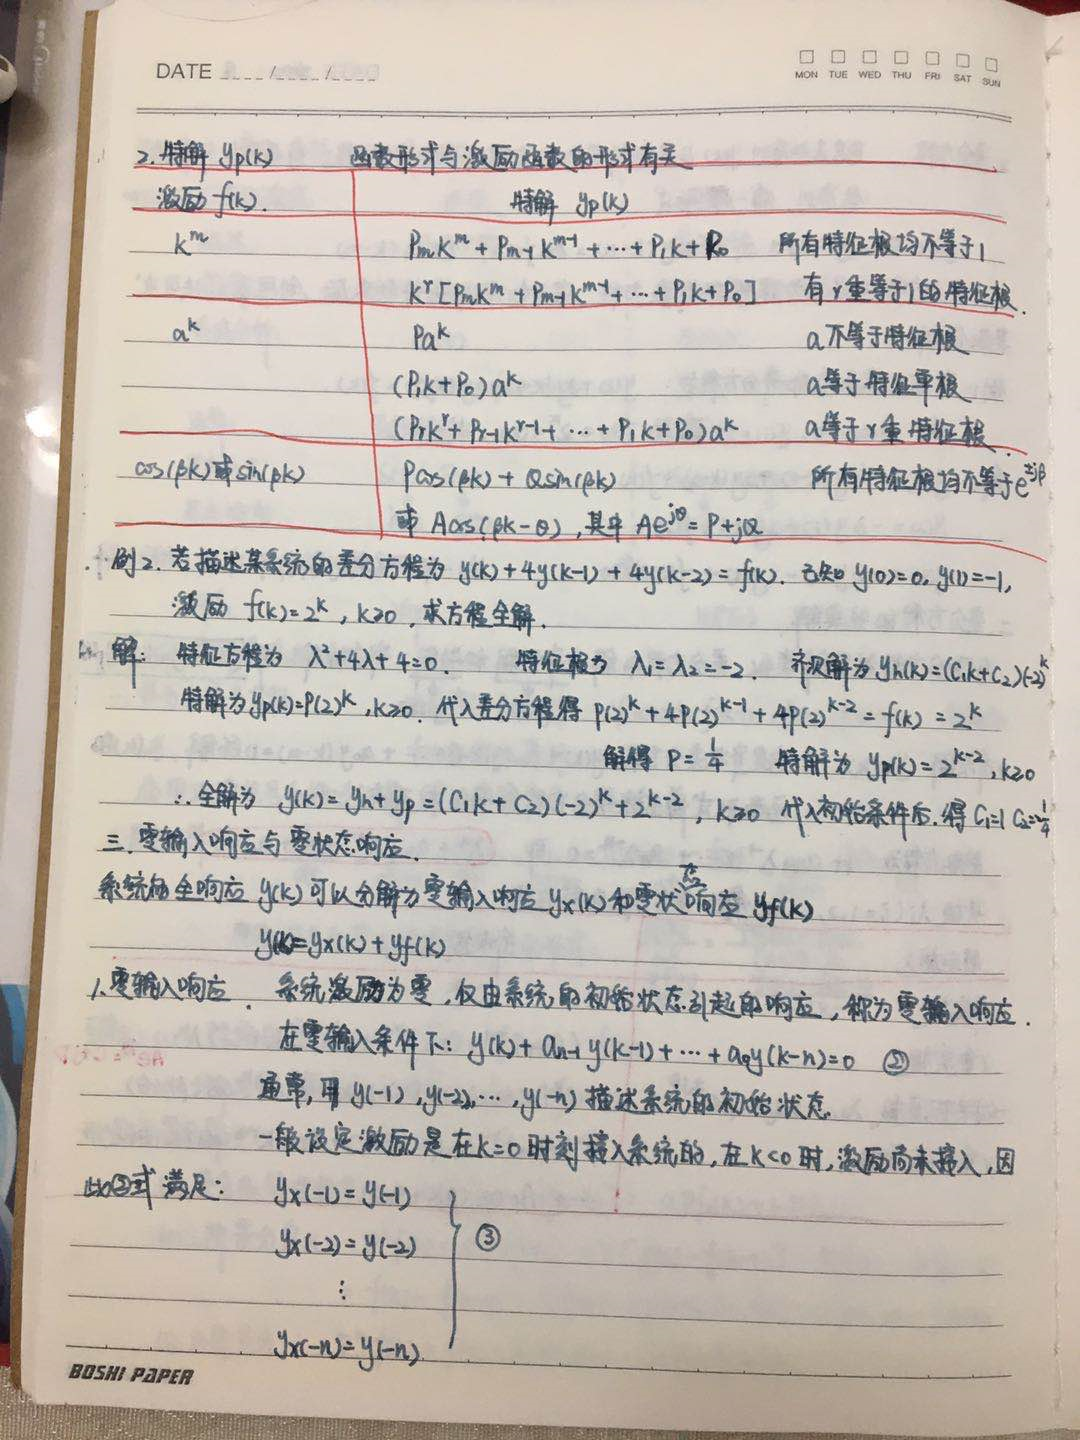 DATE ____/____/____
MON TUE WED THU FRI SAT SUN
2. 特解 yp(k) 函数形式与激励函数的形式有关
激励 f(k). 特解 yp(k)
k^m Pmk^m + Pm-1k^m-1 + … + P1k + P0 所有特征根均不等于1
k^r [Pmk^m + Pm-1k^m-1 + … + P1k + P0] 有r重等于1的特征根.
a^k Pa^k a不等于特征根
(P1k+P0)a^k a等于特征单根
(Prk^r + Pr-1k^r-1 + … + P1k + P0)a^k a等于r重特征根.
cos(βk)或sin(βk) Pcos(βk) + Qsin(βk) 所有特征根均不等于e^±jβ
或 Acos(βk-θ), 其中 Ae^jθ = P+jQ
例2. 若描述某系统的差分方程为 y(k) + 4y(k-1) + 4y(k-2) = f(k). 已知 y(0)=0, y(1)=-1,
激励 f(k)=2^k, k≥0, 求方程全解.
解: 特征方程为 λ²+4λ+4=0. 特征根为 λ1=λ2=-2. 齐次解为 yh(k)=(C1k+C2)(-2)^k
特解为yp(k)=P(2)^k, k≥0. 代入差分方程得 P(2)^k + 4P(2)^k-1 + 4P(2)^k-2 = f(k) = 2^k
解得 P=1/4 特解为 yp(k)=2^k-2, k≥0
∴全解为 y(k) = yh + yp = (C1k + C2)(-2)^k + 2^k-2, k≥0 代入初始条件后. 得 C1=1 C2=-1/4
三. 零输入响应与零状态响应.
系统的全响应 y(k) 可以分解为零输入响应 yx(k) 和零状态响应 yf(k)
y(k)=yx(k)+yf(k)
1.零输入响应. 系统激励为零, 仅由系统的初始状态引起的响应, 称为零输入响应.
在零输入条件下: y(k) + an-1 y(k-1) + … + a0y(k-n)=0 ②
通常, 用 y(-1), y(-2), …, y(-n) 描述系统的初始状态
一般设定激励是在k=0时刻接入系统的, 在k<0时, 激励尚未接入, 因
此②式满足: yx(-1) = y(-1)
yx(-2) = y(-2) ③
⋮
yx(-n) = y(-n)
BOSHI PAPER